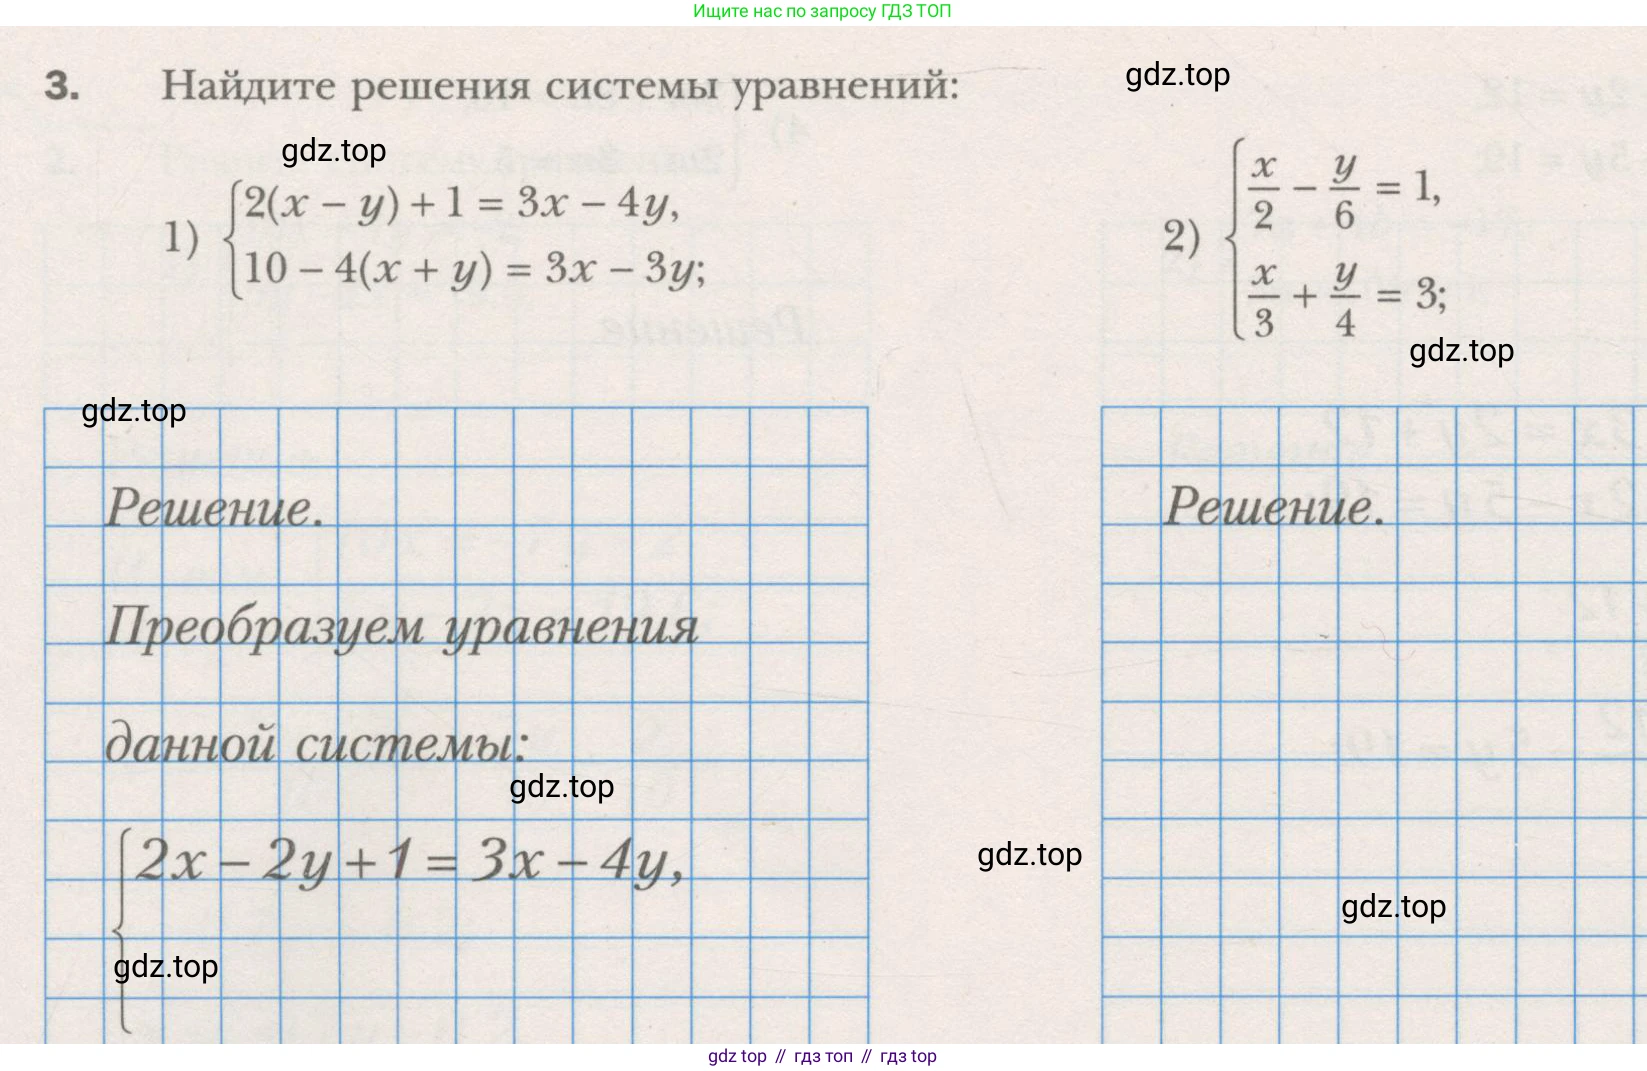 Ищите нас по запросу ГДЗ ТОП
3. Найдите решения системы уравнений:
gdz.top
gdz.top
1) {2(x − y) + 1 = 3x − 4y,
10 − 4(x + y) = 3x − 3y;
2) {x/2 − y/6 = 1,
x/3 + y/4 = 3;
gdz.top
gdz.top
Решение.
Преобразуем уравнения
данной системы:
gdz.top
{2x − 2y + 1 = 3x − 4y,
gdz.top
Решение.
gdz.top
gdz.top
gdz top // гдз топ // гдз top